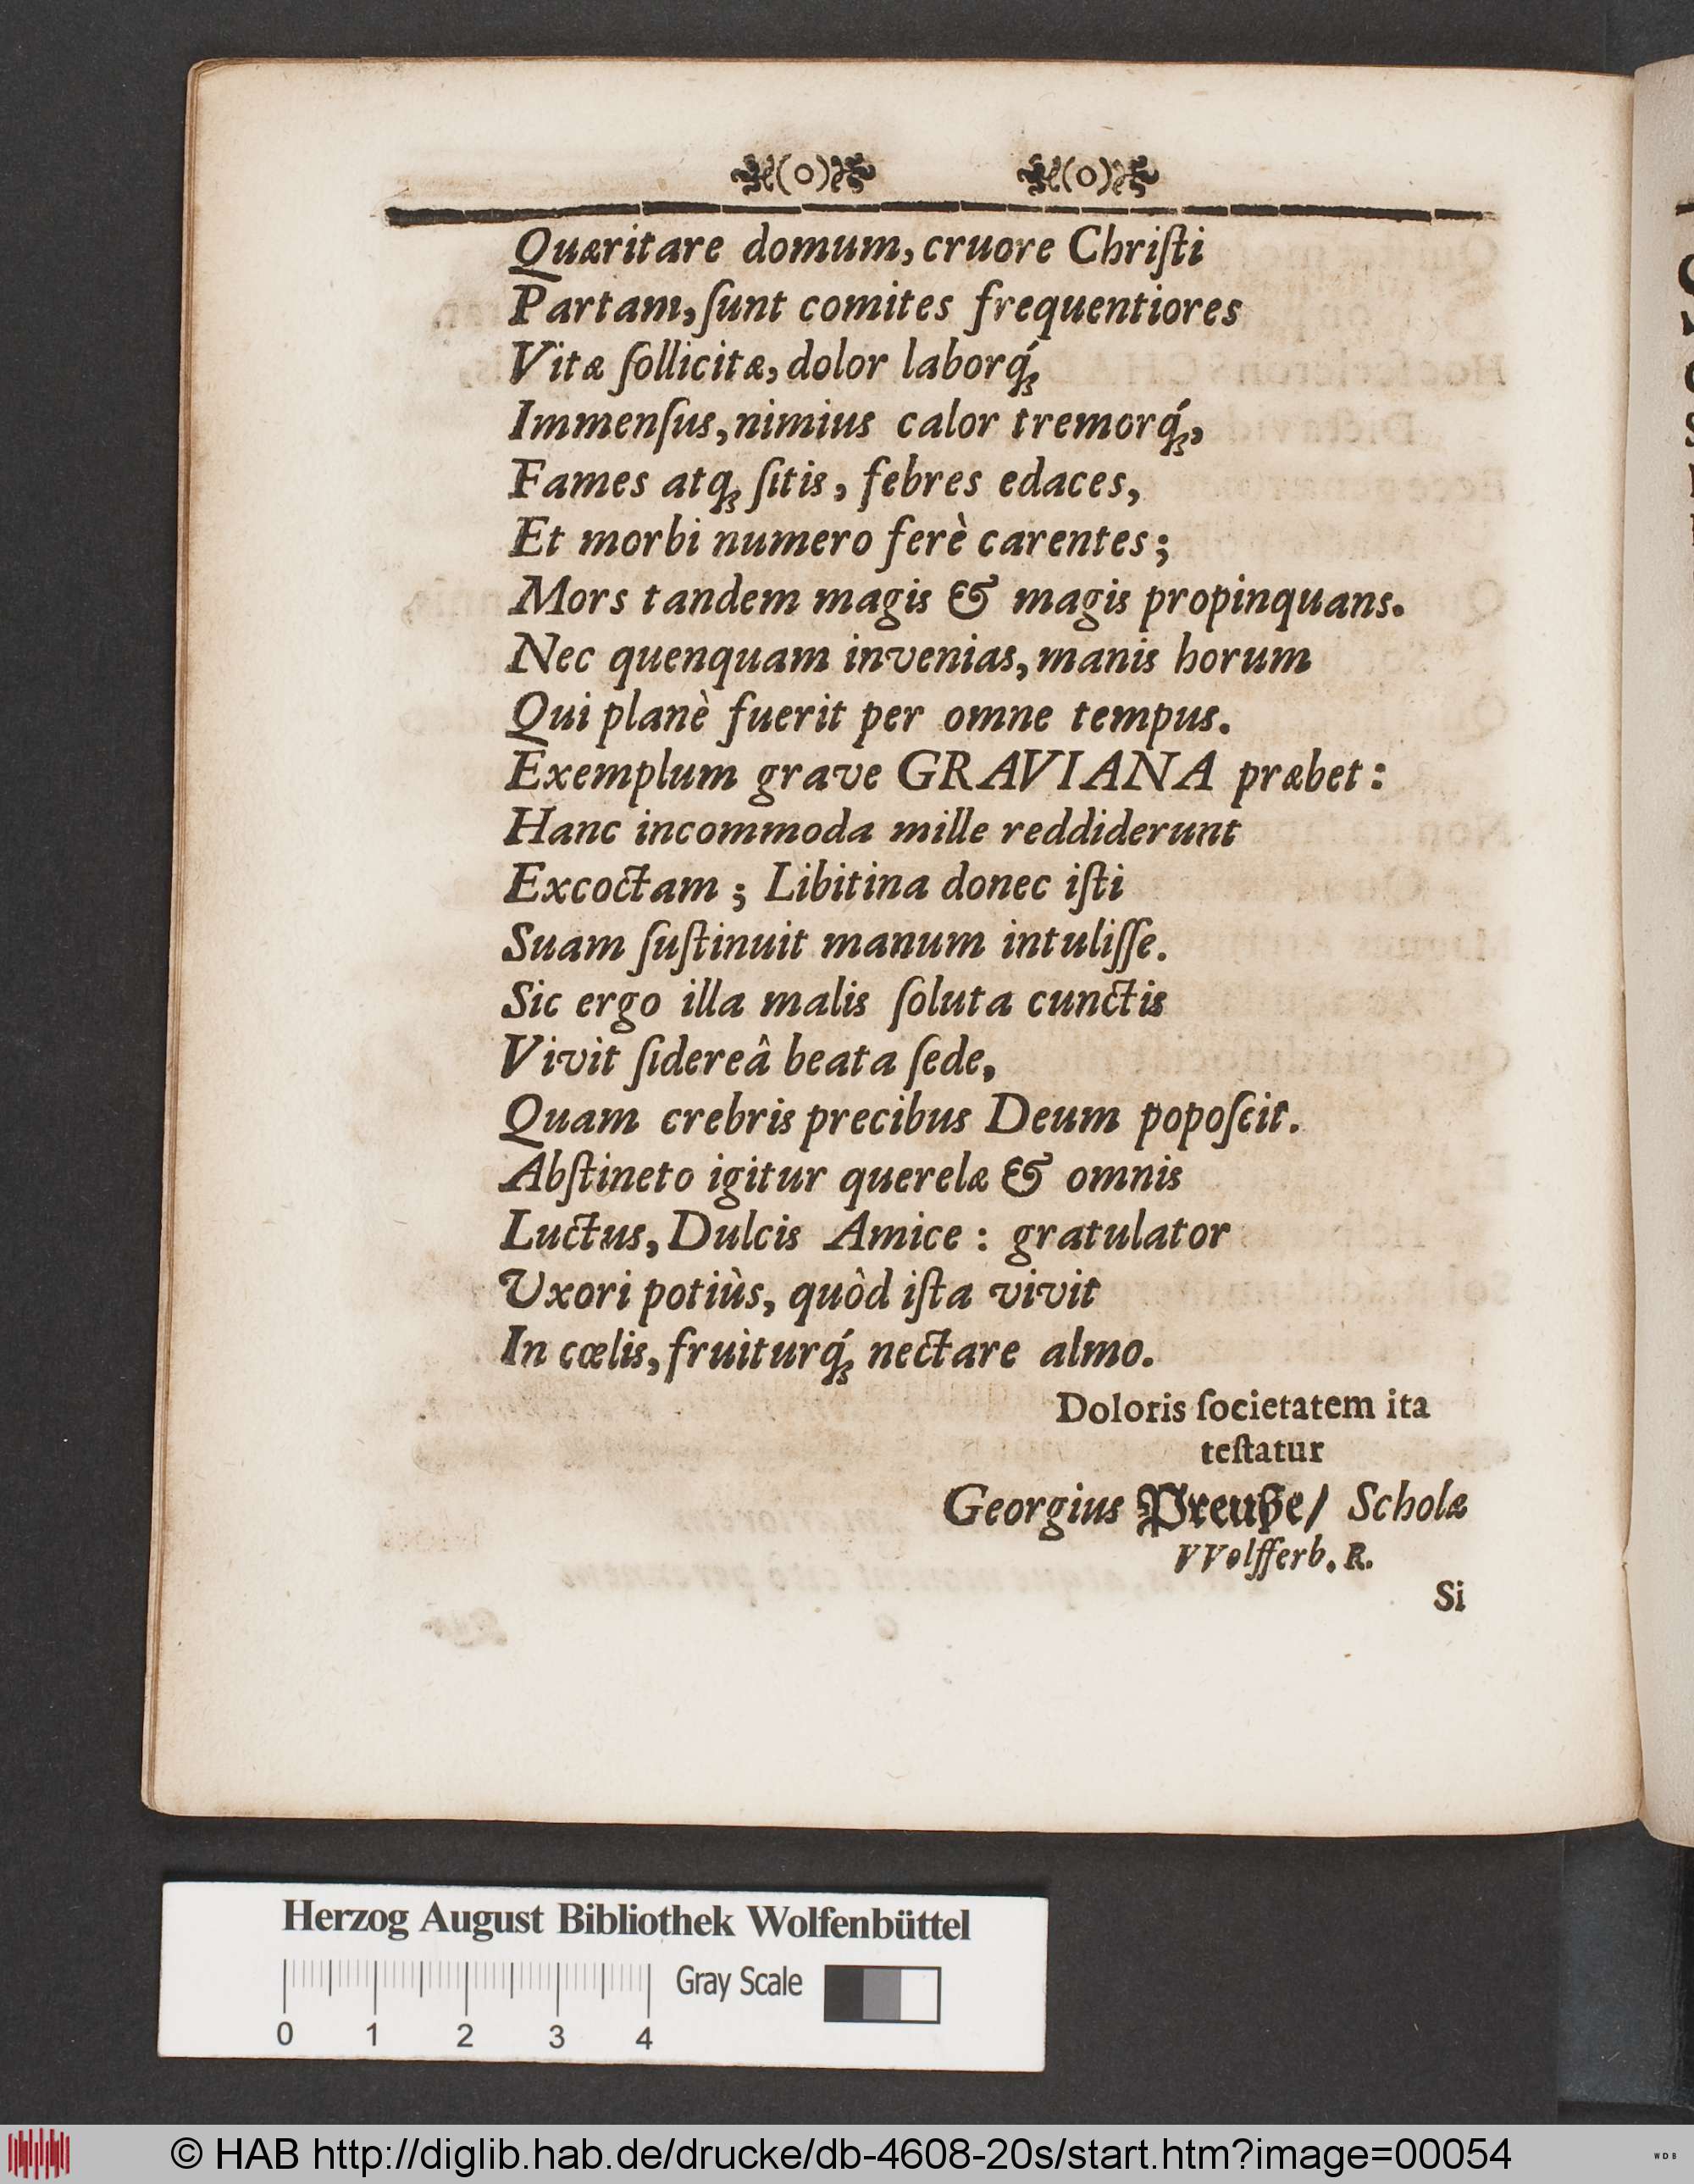 (o) (o)
Quæritare domum, cruore Chriſti
Partam, ſunt comites frequentiores
Vitæ ſollicitæ, dolor laborq́ꝫ
Immenſus, nimius calor tremorq́ꝫ,
Fames atqꝫ ſitis, febres edaces,
Et morbi numero ferè carentes;
Mors tandem magis & magis propinquans.
Nec quenquam invenias, manis horum
Qui planè fuerit per omne tempus.
Exemplum grave GRAVIANA præbet:
Hanc incommoda mille reddiderunt
Excoctam; Libitina donec iſti
Suam ſuſtinuit manum intuliſſe.
Sic ergo illa malis ſoluta cunctis
Vivit ſidereâ beata ſede,
Quam crebris precibus Deum popoſcit.
Abſtineto igitur querelæ & omnis
Luctus, Dulcis Amice: gratulator
Uxori potiùs, quòd iſta vivit
In cœlis, fruiturq́ꝫ nectare almo.
Doloris ſocietatem ita
teſtatur
Georgius Preuße/ Scholæ
VVolfferb. R.
Si
Herzog August Bibliothek Wolfenbüttel
Gray Scale
0 1 2 3 4
© HAB http://diglib.hab.de/drucke/db-4608-20s/start.htm?image=00054
WDB